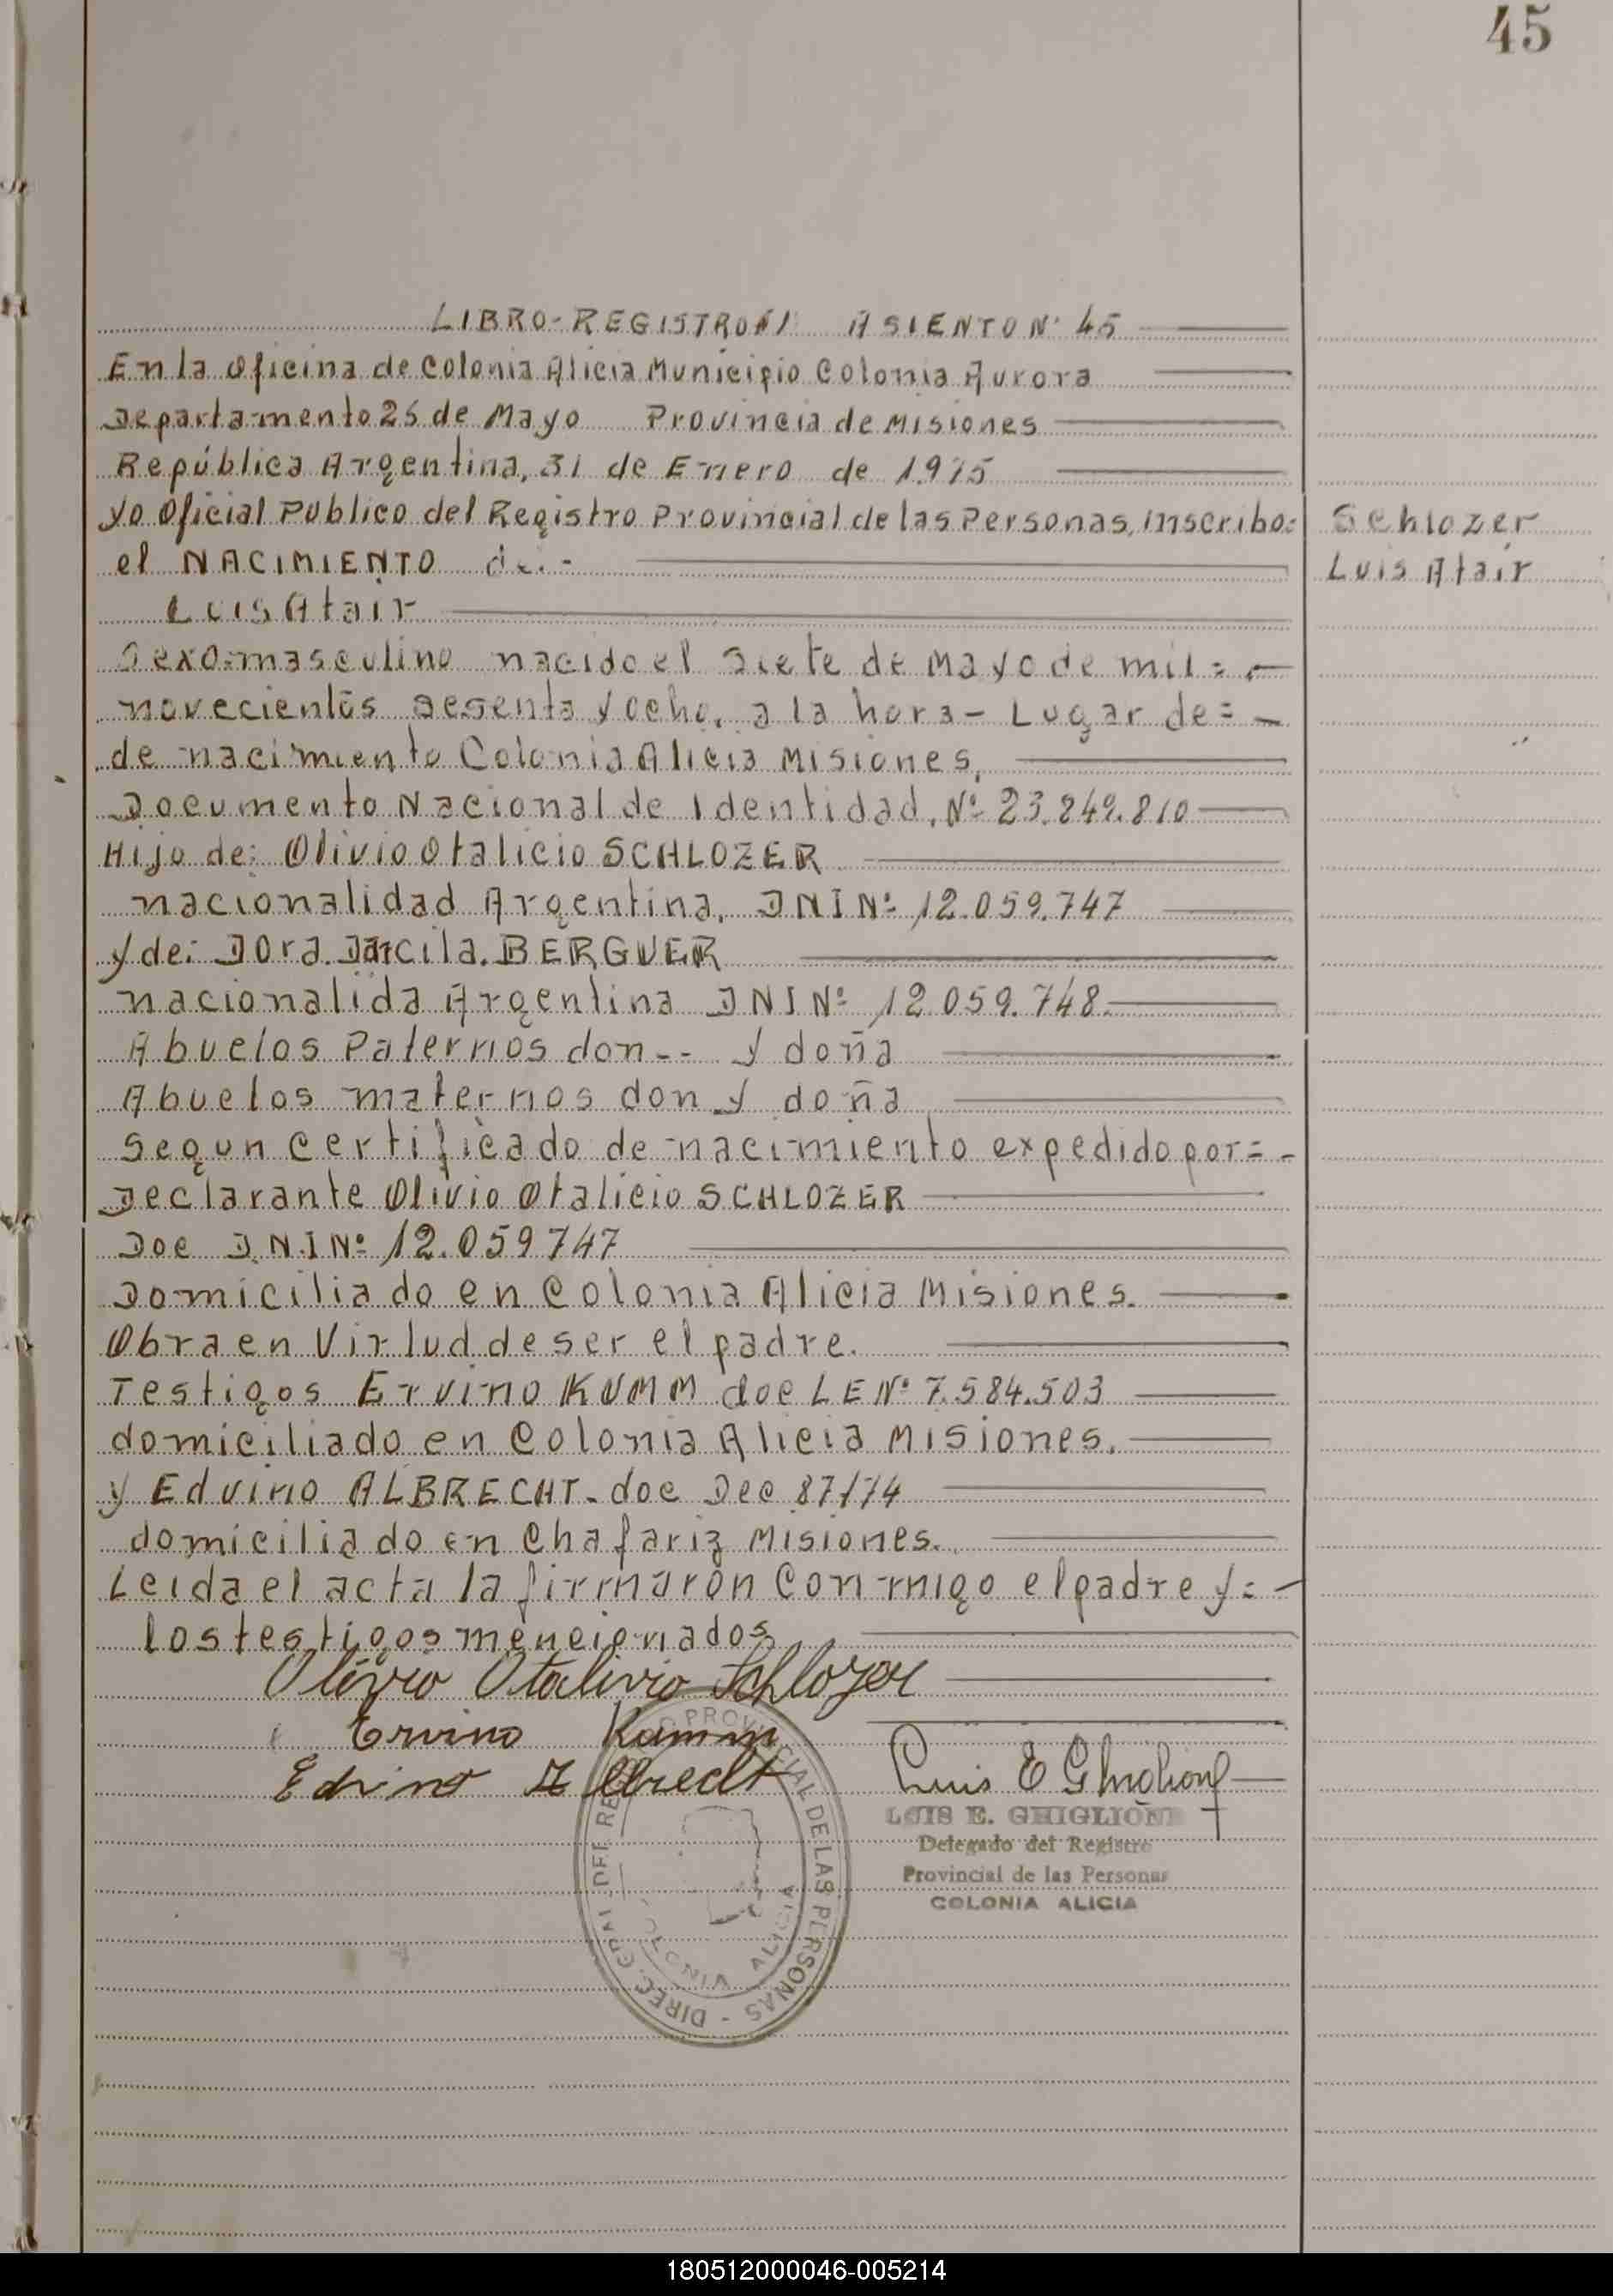 45
LIBRO-REGISTRO Nº1 ASIENTO Nº 45
En la Oficina de Colonia Alicia Municipio Colonia Aurora
Departamento 25 de Mayo Provincia de Misiones
República Argentina, 31 de Enero de 1975
yo Oficial Público del Registro Provincial de las Personas, Inscribo:
el NACIMIENTO de.-
Luis Atair
Sexo=masculino nacido el siete de Mayo de mil=
novecientos sesenta y ocho, a la hora- Lugar de=
de nacimiento Colonia Alicia Misiones,
Documento Nacional de Identidad, Nº 23.249.810
Hijo de: Olivio Otalicio SCHLOZER
nacionalidad Argentina, DNI Nº 12.059.747
y de: Dora Darcila. BERGUER
nacionalida Argentina DNI Nº 12.059.748.
Abuelos Paternos don-- y doña
Abuelos maternos don y doña
Segun Certificado de nacimiento expedido por=-
Declarante Olivio Otalicio SCHLOZER
Doc D.N.I Nº 12.059747
Domiciliado en Colonia Alicia Misiones.
Obra en Virtud de ser el padre.
Testigos Ervino KUMM doc LE Nº 7.584.503
domiciliado en Colonia Alicia Misiones.
y Edvino ALBRECHT- doc Dec 87/74
domiciliado en Chafariz Misiones.
Leida el acta la firmaron Conmigo el padre y=
los testigos mencionados
Schlozer
Luis Atair
Olivio Otalivio Schlozer
Ervino Kumm
Edvino Albrecht
Luis E Ghiglione
LUIS E. GHIGLIONE
Delegado del Registro
Provincial de las Personas
COLONIA ALICIA
DIREC. GRAL. DEL REG PROVINCIAL DE LAS PERSONAS -
COLONIA ALICIA
180512000046-005214